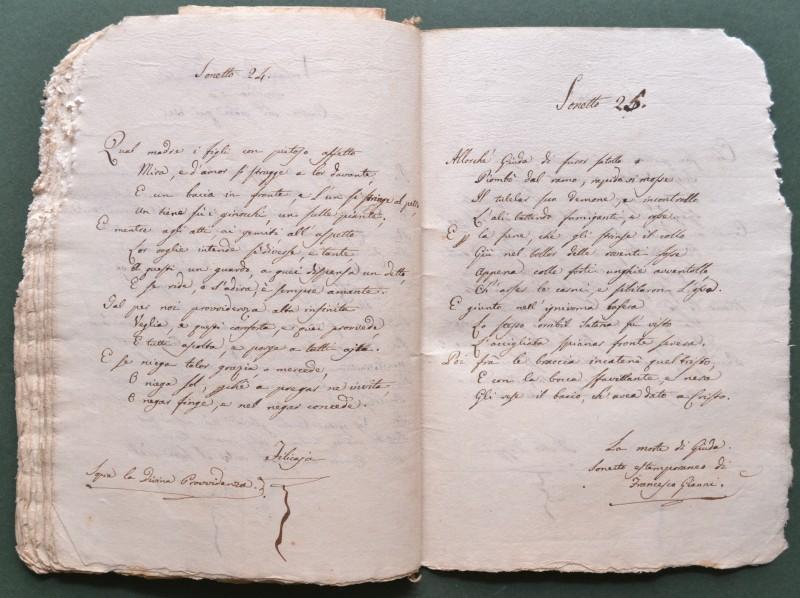 Sonetto 24.
Qual madre i figli con pietoso affetto
Mira, e d'amor si strugge a lor davante,
E un bacia in fronte, e l'un si stringe al petto,
Un tiene su i ginocchi, un sulle piante,
E mentre agli atti ai gemiti all'aspetto
Lor voglie intende sì diverse, e tante,
A questi un guardo, a quei dispensa un detto,
E se ride, e s'adira, è sempre amante.
Tal per noi provvidenza alta infinita
Veglia, e questi conforta, e quei provvede
E tutti ascolta, e porge a tutti aita.
E se niega talor grazia, o mercede,
O niega sol, perchè a pregar ne invita,
O negar finge, e nel negar concede.
Filicaja
Sopra la Divina Provvidenza.
Sonetto 25.
Allorchè Giuda di furor satollo
Piombò dal ramo, rapido si mosse
Il tutelar suo demone, e incontrollo
L'ali battendo fumiganti, e rosse
E per la fune che gli strinse il collo
Giù nel bollor delle roventi fosse
Appena colle forti unghie avventollo
Ch'arser le carni, e sibilaron l'ossa.
E giunto nell'ignivoma bufera
Lo stesso orribil Satana fu visto
L'accigliata spianar fronte severa.
Poi fra le braccia incatenò quel tristo,
E con la bocca sfavillante, e nera
Gli rese il bacio, ch'avea dato a Cristo.
La morte di Giuda.
Sonetto estemporaneo di
Francesco Gianni.